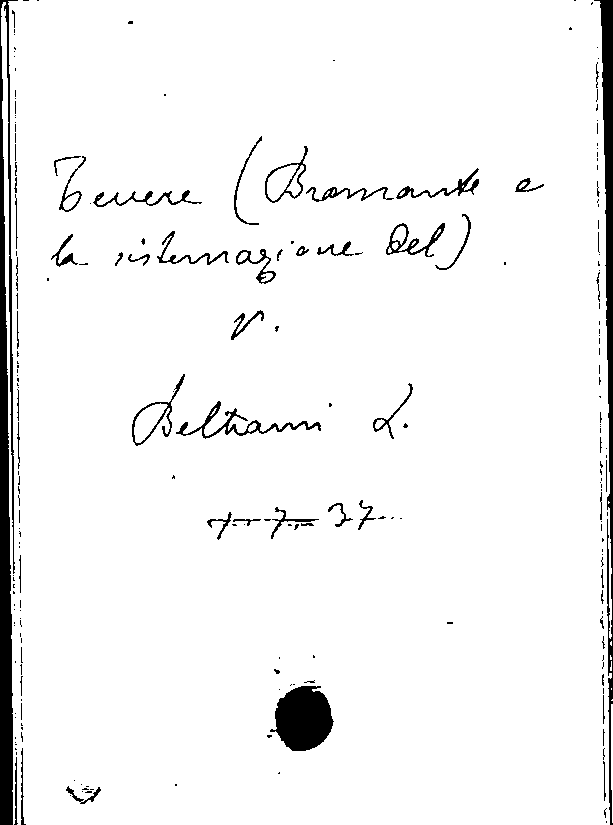 Tevere (Bramante e
la sistemazione del)
v.
Beltrami L.
7 37